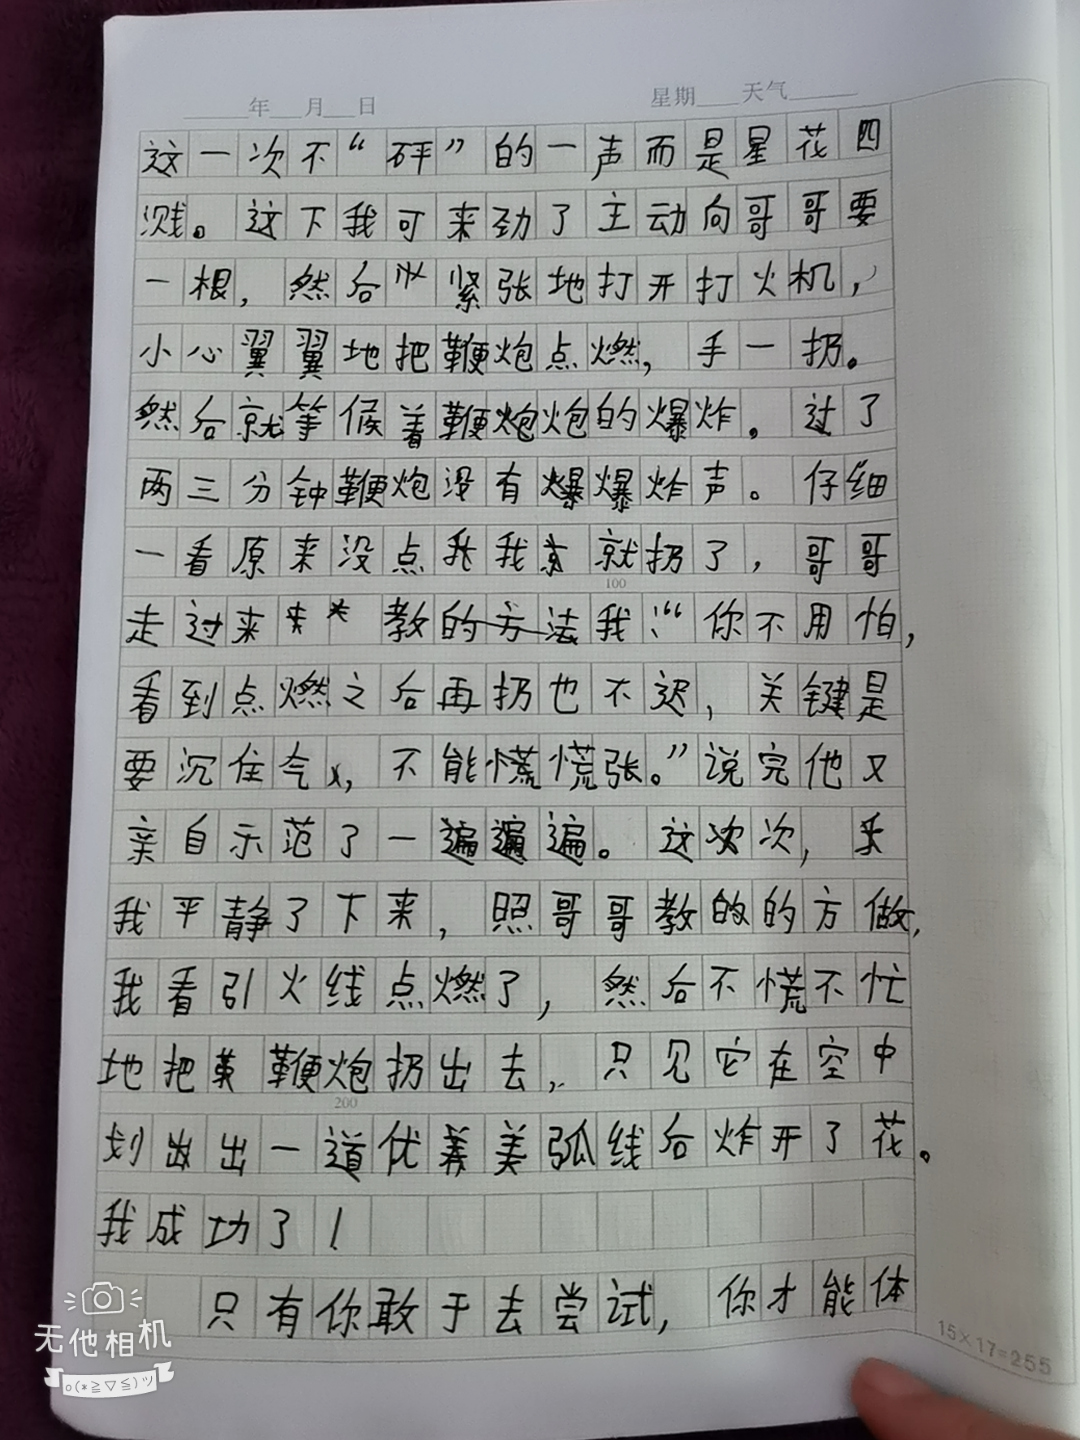 年 月 日 星期 天气
这一次不“砰”的一声而是星花四
溅。这下我可来劲了主动向哥哥要
一根，然后 紧张地打开打火机，
小心翼翼地把鞭炮点燃，手一扔。
然后就等候着鞭炮炮的爆炸。过了
两三分钟鞭炮没有爆爆炸声。仔细
一看原来没点我我就扔了，哥哥
100
走过来 教的方法我：“你不用怕，
看到点燃之后再扔也不迟，关键是
要沉住气，不能慌慌张。”说完他又
亲自示范了一遍遍遍。这次次，
我平静了下来，照哥哥教的的方做，
我看引火线点燃了，然后不慌不忙
地把 鞭炮扔出去，只见它在空中
200
划出出一道优美美弧线后炸开了花。
我成功了！
只有你敢于去尝试，你才能体
15×17=255
无他相机
o(*≧▽≦)ツ